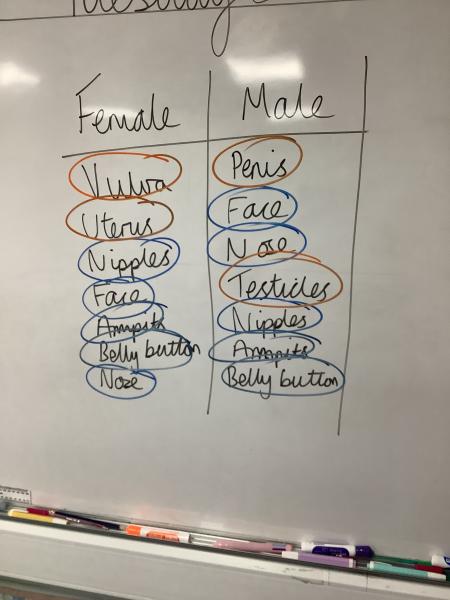 Tuesday
Female Male
Vulva Penis
Uterus Face
Nipples Nose
Face Testicles
Ampits Nipples
Belly button Ampits
Noze Belly button